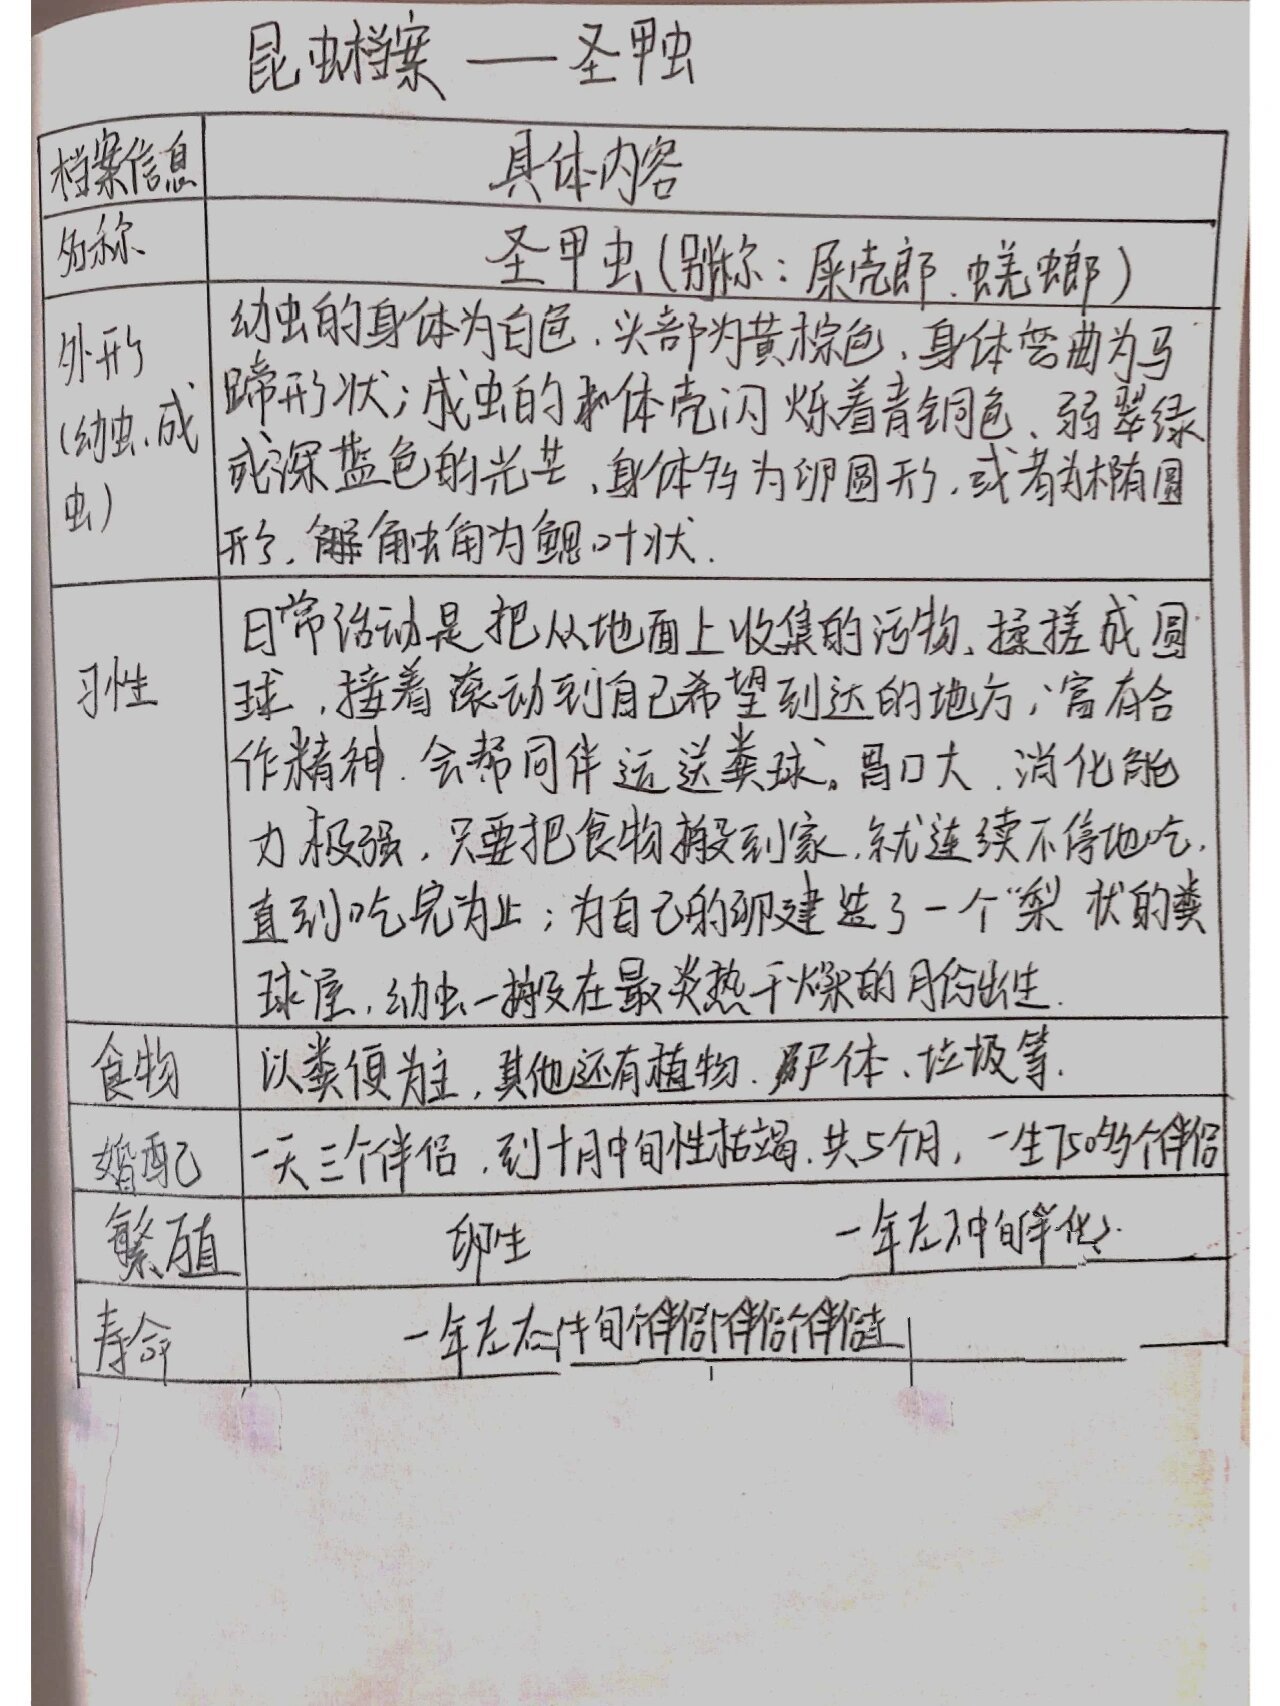 昆虫档案——圣甲虫
档案信息 具体内容
名称 圣甲虫(别称:屎壳郎、蜣螂)
外形
(幼虫、成
虫)
幼虫的身体为白色、头部为黄棕色、身体弯曲为马
蹄形状;成虫的体壳闪烁着青铜色、弱翠绿
或深蓝色的光芒、身体多为卵圆形、或者为椭圆
形、触角为鳃叶状.
习性
日常活动是把从地面上收集的污物、揉搓成圆
球、接着滚动到自己希望到达的地方;富有合
作精神.会帮同伴运送粪球。胃口大、消化能
力极强,只要把食物搬到家、就连续不停地吃.
直到吃完为止;为自己的卵建造了一个“梨状的粪
球屋、幼虫一般在最炎热干燥的月份出生.
食物 以粪便为主,其他还有植物、尸体、垃圾等.
婚配 一天三个伴侣、到十月中旬性枯竭、共5个月,一生750多个伴侣
繁殖 卵生 一年左 中旬
寿命 一年左右